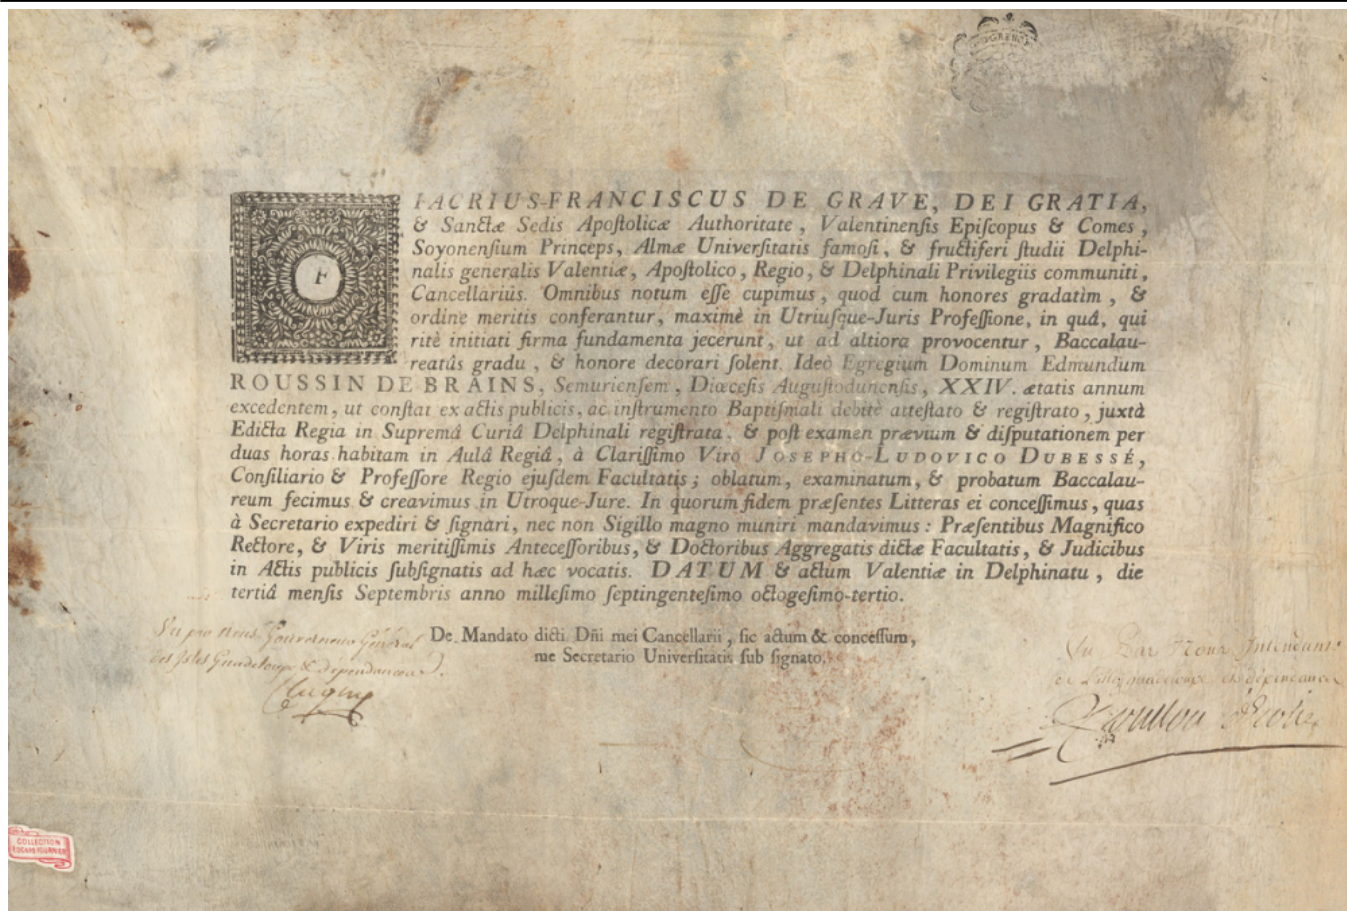 FIACRIUS-FRANCISCUS DE GRAVE, DEI GRATIA,
& Sanctæ Sedis Apoſtolicæ Authoritate, Valentinenſis Epiſcopus & Comes,
Soyonenſium Princeps, Almæ Univerſitatis famoſi, & fructiferi ſtudii Delphi-
nalis generalis Valentiæ, Apoſtolico, Regio, & Delphinali Privilegiis communiti,
Cancellariûs. Omnibus notum eſſe cupimus, quod cum honores gradatìm, &
ordine meritis conferantur, maximè in Utriuſque-Juris Profeſſione, in quâ, qui
ritè initiati firma fundamenta jecerunt, ut ad altiora provocentur, Baccalau-
reatûs gradu, & honore decorari ſolent. Ideò Egregium Dominum Edmundum
ROUSSIN DE BRAINS, Semurienſem, Diœceſis Auguſtodunenſis, XXIV. ætatis annum
excedentem, ut conſtat ex actis publicis, ac inſtrumento Baptiſmali debitè atteſtato & regiſtrato, juxtà
Edicta Regia in Supremâ Curiâ Delphinali regiſtrata, & poſt examen prævium & diſputationem per
duas horas habitam in Aulâ Regiâ, à Clariſſimo Viro JOSEPHO-LUDOVICO DUBESSÉ,
Conſiliario & Profeſſore Regio ejuſdem Facultatis; oblatum, examinatum, & probatum Baccalau-
reum fecimus & creavimus in Utroque-Jure. In quorum fidem præſentes Litteras ei conceſſimus, quas
à Secretario expediri & ſignari, nec non Sigillo magno muniri mandavimus: Præſentibus Magnifico
Rectore, & Viris meritiſſimis Anteceſſoribus, & Doctoribus Aggregatis dictæ Facultatis, & Judicibus
in Actis publicis ſubſignatis ad hæc vocatis. DATUM & actum Valentiæ in Delphinatu, die
tertiâ menſis Septembris anno milleſimo ſeptingenteſimo octogeſimo-tertio.
De Mandato dicti Dñi mei Cancellarii, ſic actum & conceſſum,
me Secretario Univerſitatis ſub ſignato.
Vu par nous Gouverneur Général
des Isles Guadeloupe & dépendances.
Clugny
Vu Par Nous Intendant
de L'Isle guadeloupe et dépendances
Foullon d'Ecotier
COLLECTION